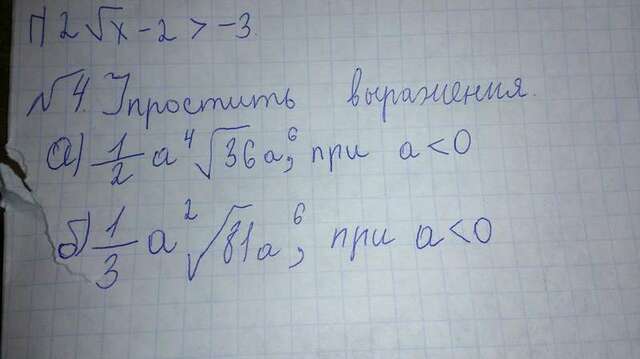 П) 2√x - 2 > -3.
№4. Упростить выражения.
а) 1/2 a⁴ √36a⁶, при a < 0
б) 1/3 a² √81a⁶, при a < 0